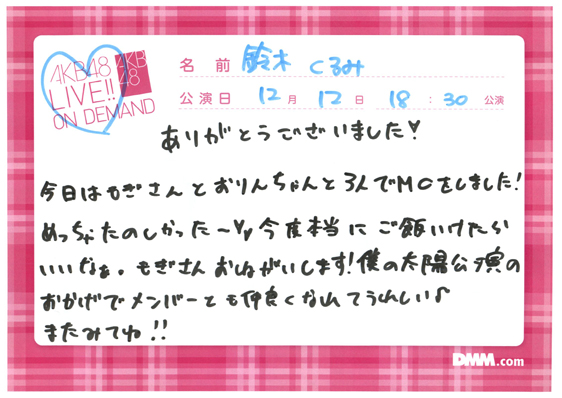 AKB48
LIVE!!
ON DEMAND
AKB
48
名前 鈴木 くるみ
公演日 12月 12日 18:30 公演
ありがとうございました♡
今日はもぎさんとおりんちゃんと3人でMCをしました!
めっちゃたのしかったー♡♡今度本当にご飯いけたら
いいなぁ。もぎさんおねがいします!僕の太陽公演の
おかげでメンバーとも仲良くなれてうれしい♪
またみてね!!
DMM.com